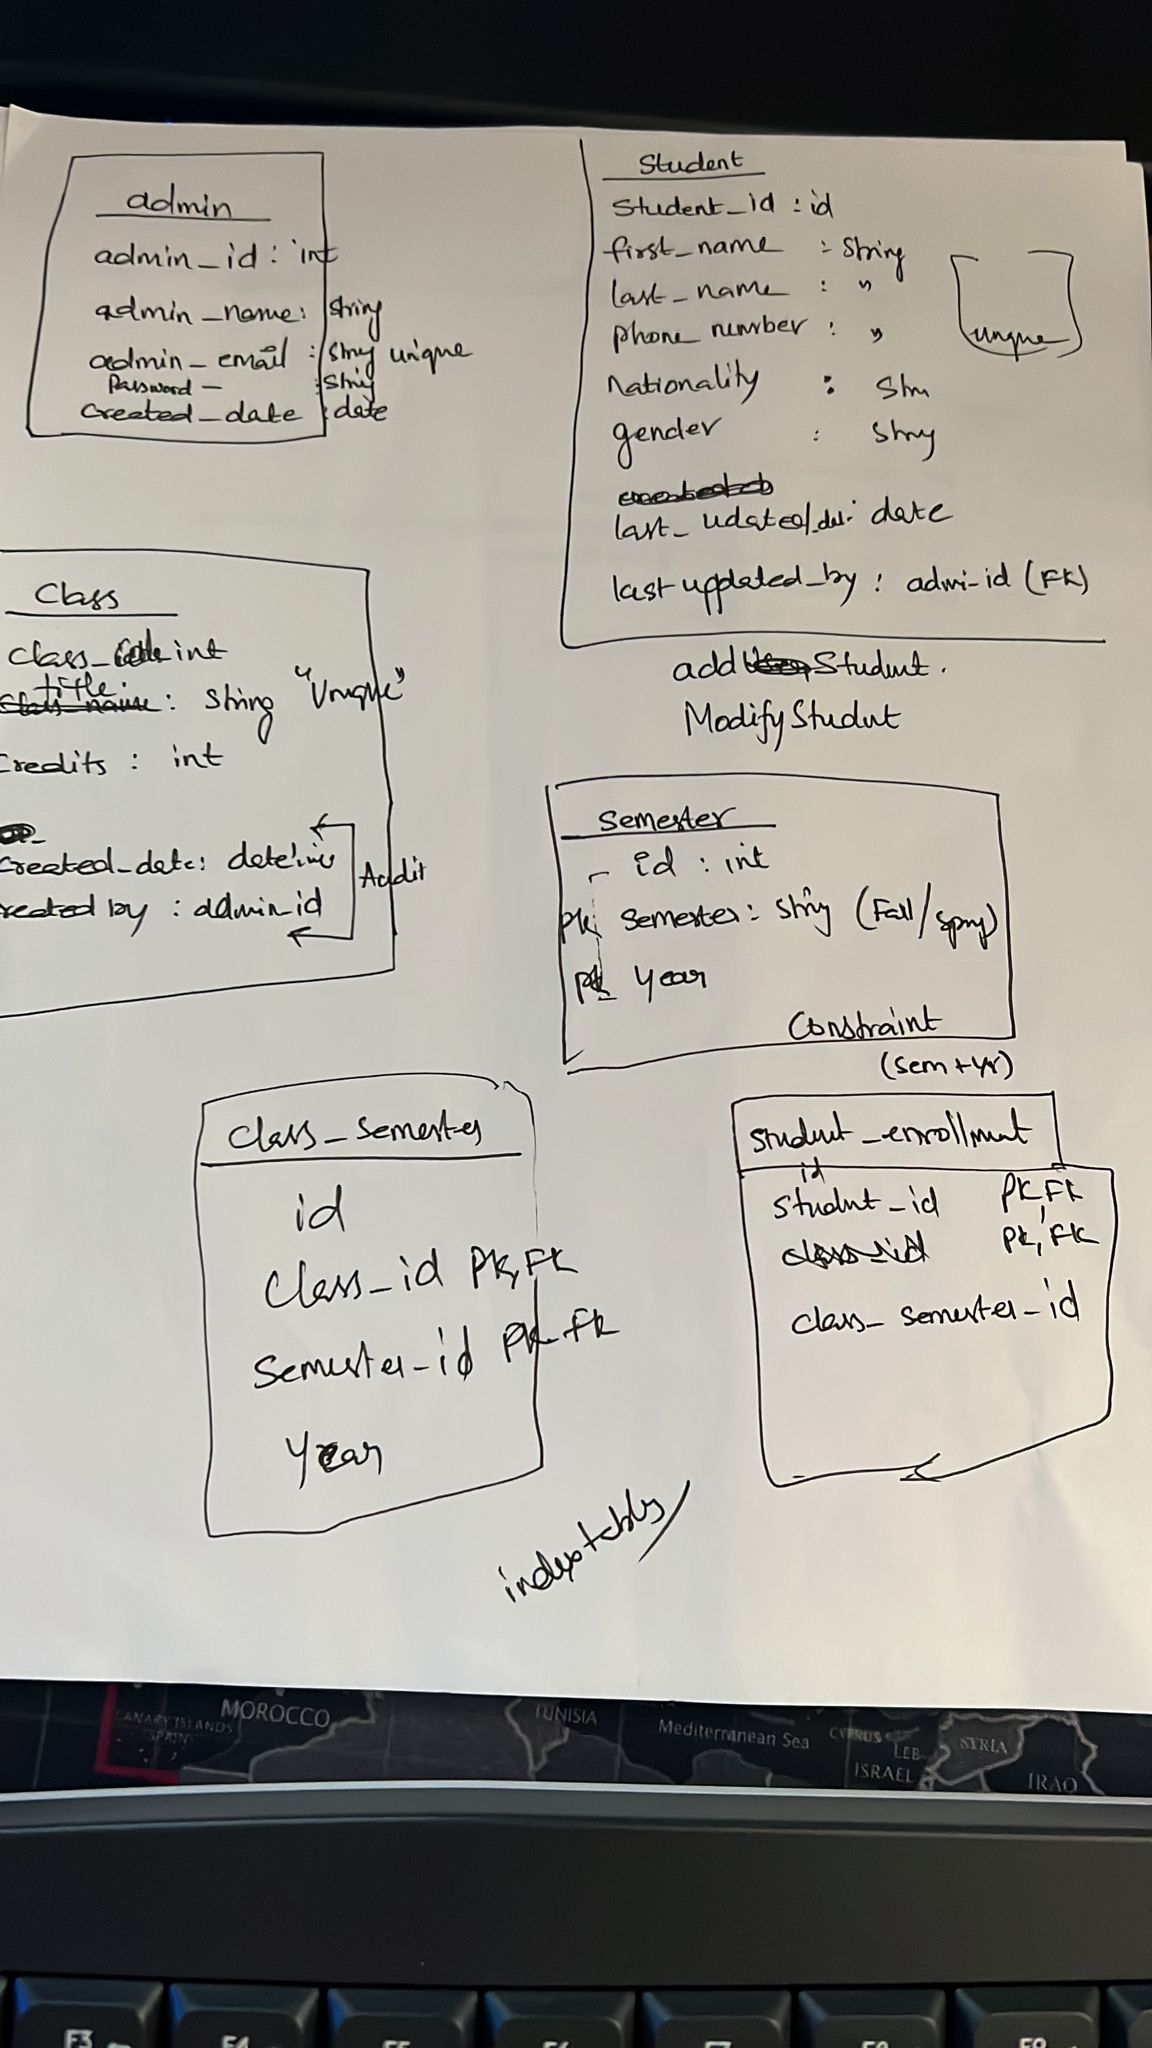 admin
admin_id : int
admin_name : string
admin_email : string unique
Password - : string
Created_date : date
Student
Student_id : id
first_name : String
last_name : "
phone number : "
unqne
nationality : Stn
gender : Stny
last_udated/dt: date
last updated_by : admi-id (FK)
add Student.
Modify Studnt
Class
Class_ int
title
class_name : String "Unique"
Credits : int
Created_date : datetime
reated by : admin_id
Audit
Semester
id : int
PK Semester : Stny (Fall/Spny)
PK Year
Constraint
(Sem + yr)
class_semester
id
Class_id PK, FK
Semester_id PK FK
Year
Student_enrollment
id
Student_id PK, FK
class_id PK, FK
class_semester_id
index tables
MOROCCO
CANARY ISLANDS
SPAIN
TUNISIA
Mediterranean Sea
CYPRUS
LEB
ISRAEL
SYRIA
IRAQ
F3
F4
F5
F6
F7
F8
F9